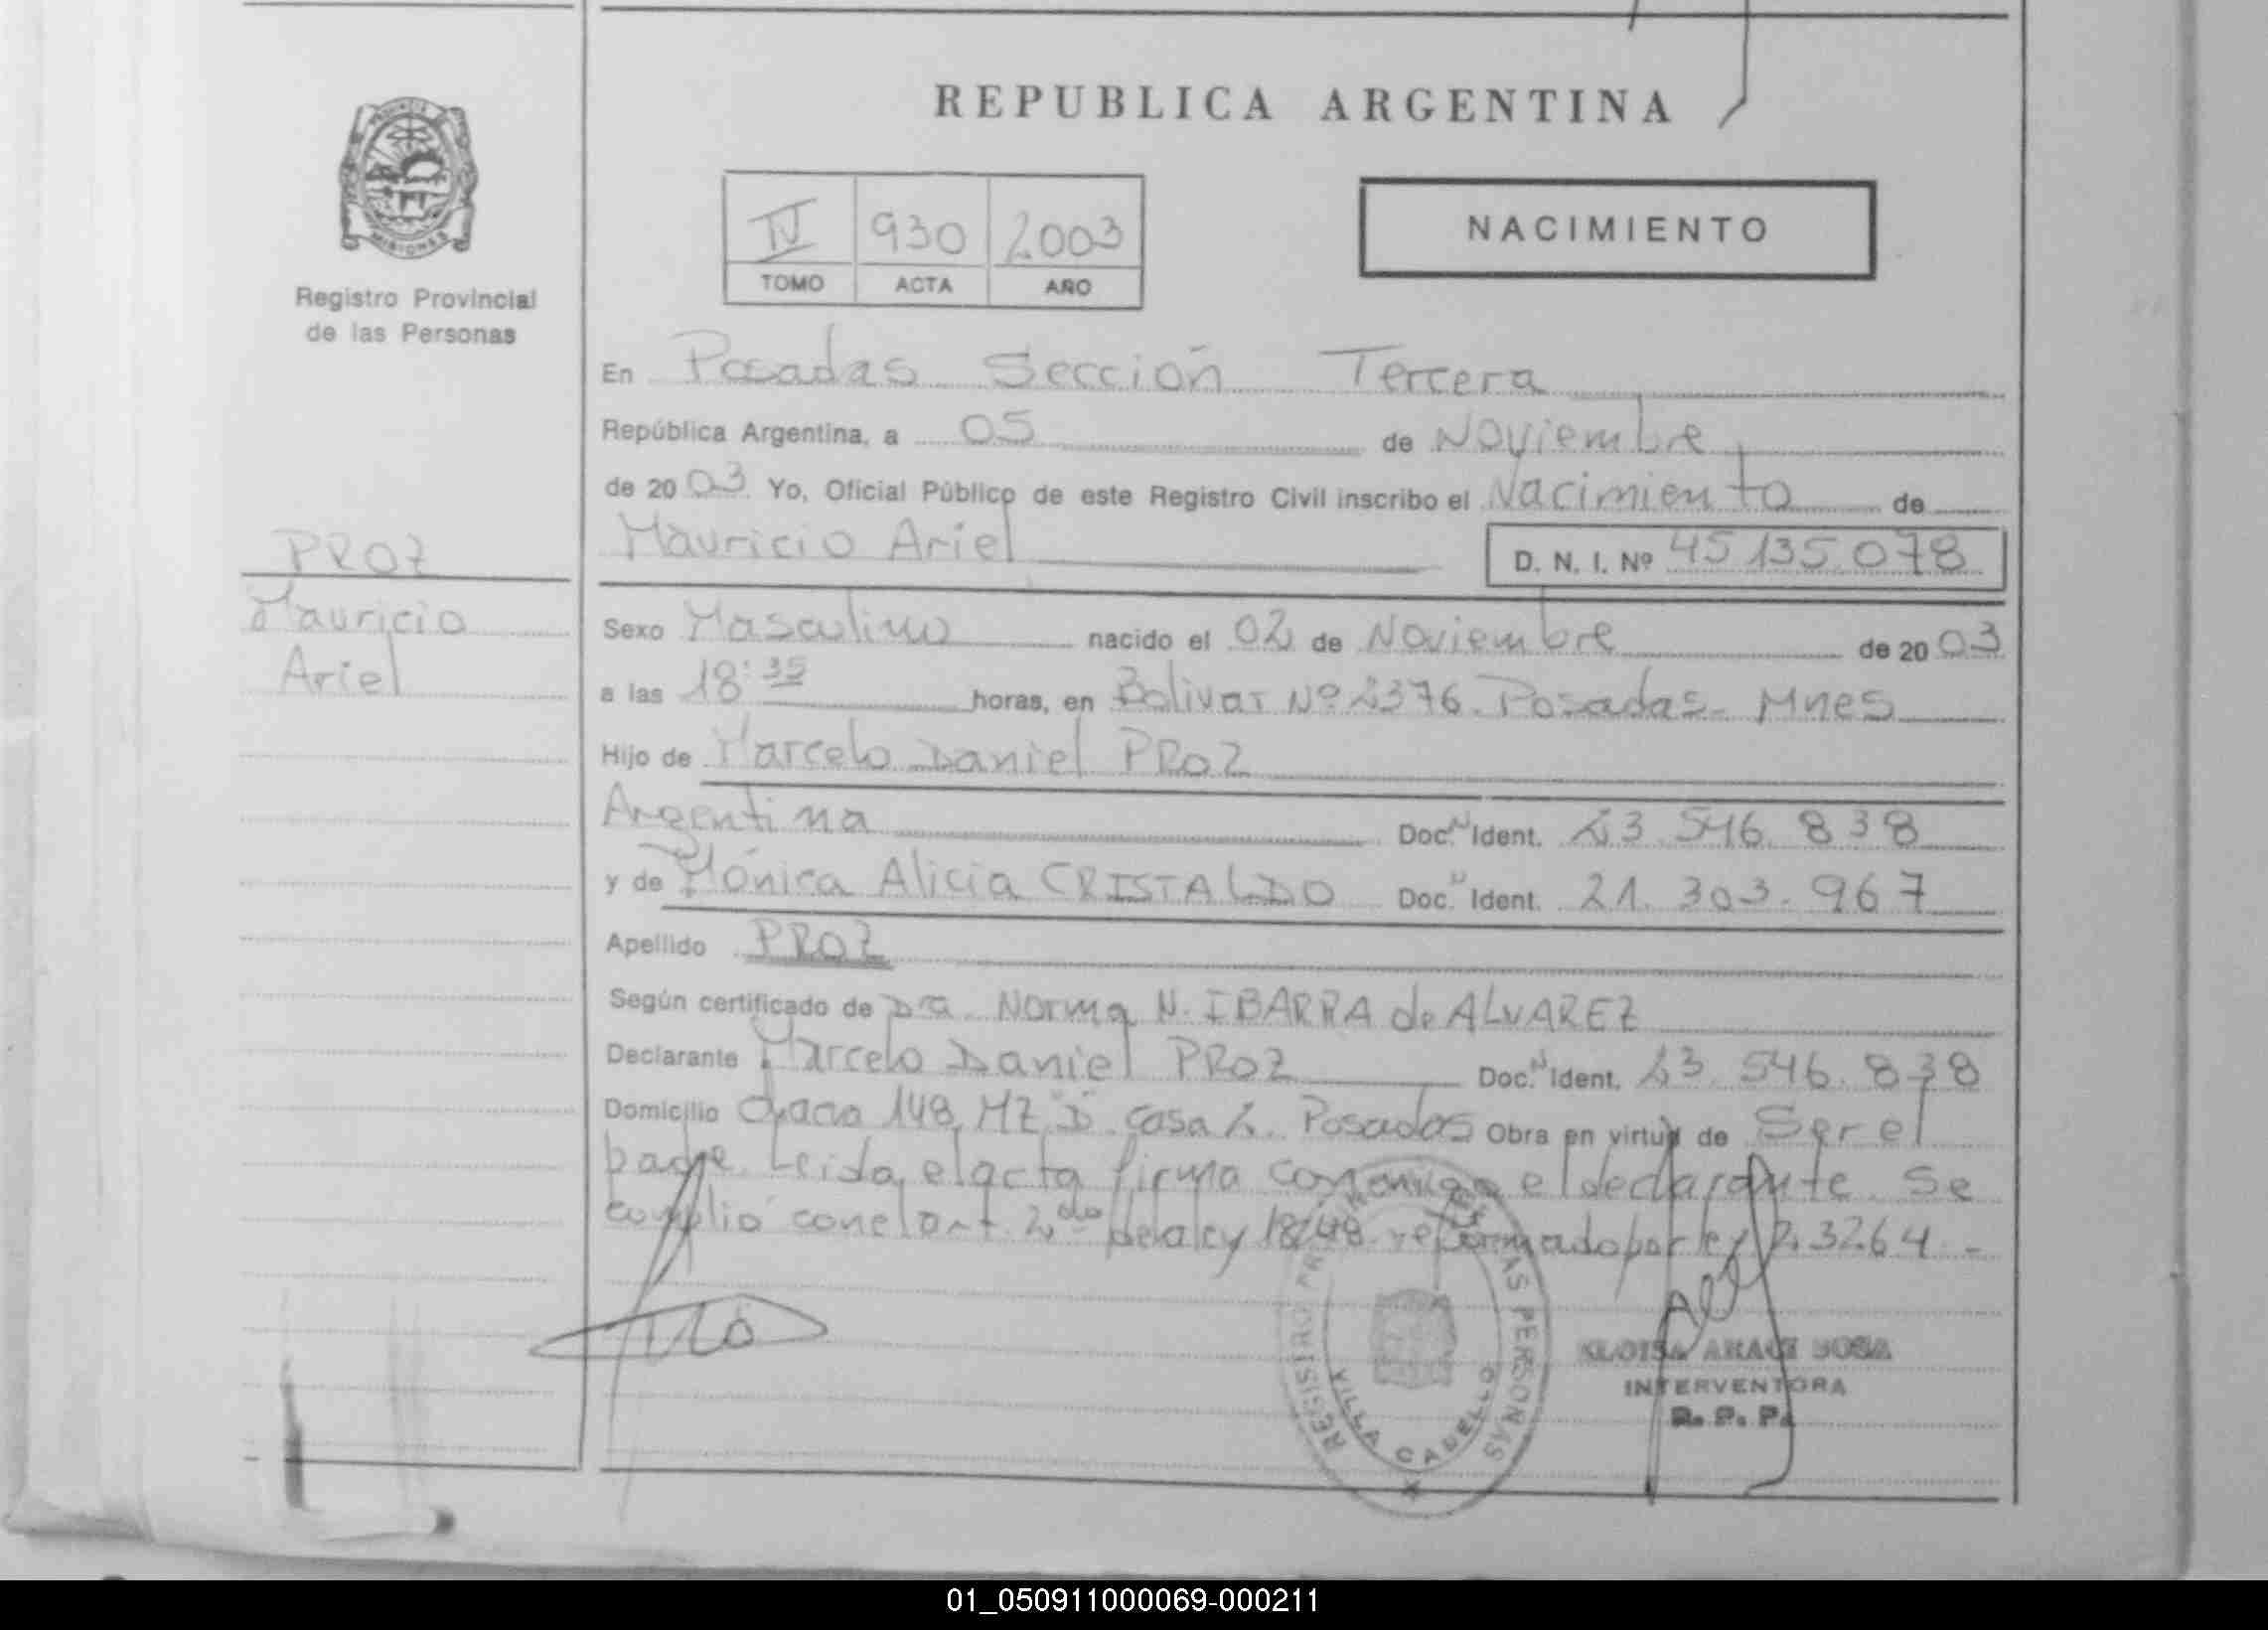 REPUBLICA ARGENTINA
MISIONES
Registro Provincial
de las Personas
IV 930 2003
TOMO ACTA AÑO
NACIMIENTO
En Posadas Sección Tercera
República Argentina, a 05 de Noviembre
de 2003 Yo, Oficial Público de este Registro Civil inscribo el Nacimiento de
Mauricio Ariel
D. N. I. Nº 45 135.078
PROZ
Mauricio
Ariel
Sexo Masculino nacido el 02 de Noviembre de 2003
a las 18:35 horas, en Bolivar Nº 2376. Posadas- Mnes
Hijo de Marcelo Daniel PROZ
Argentina Doc. Ident. 23.546.838
y de Mónica Alicia CRISTALDO Doc. Ident. 21.303.967
Apellido PROZ
Según certificado de Dra. Norma N. IBARRA de ALVAREZ
Declarante Marcelo Daniel PROZ Doc. Ident. 23.546.838
Domicilio Chacra 148, MZ "D" casa 2. Posadas Obra en virtud de Ser el
padre. Leida el acta firma conmigo el declarante. Se
cumplió con el art. 2do de la ley 18248 reformado por ley 23264.-
REGISTRO PROVINCIAL DE LAS PERSONAS
VILLA CABELLO
INTERVENTORA
R. P. P.
01_050911000069-000211